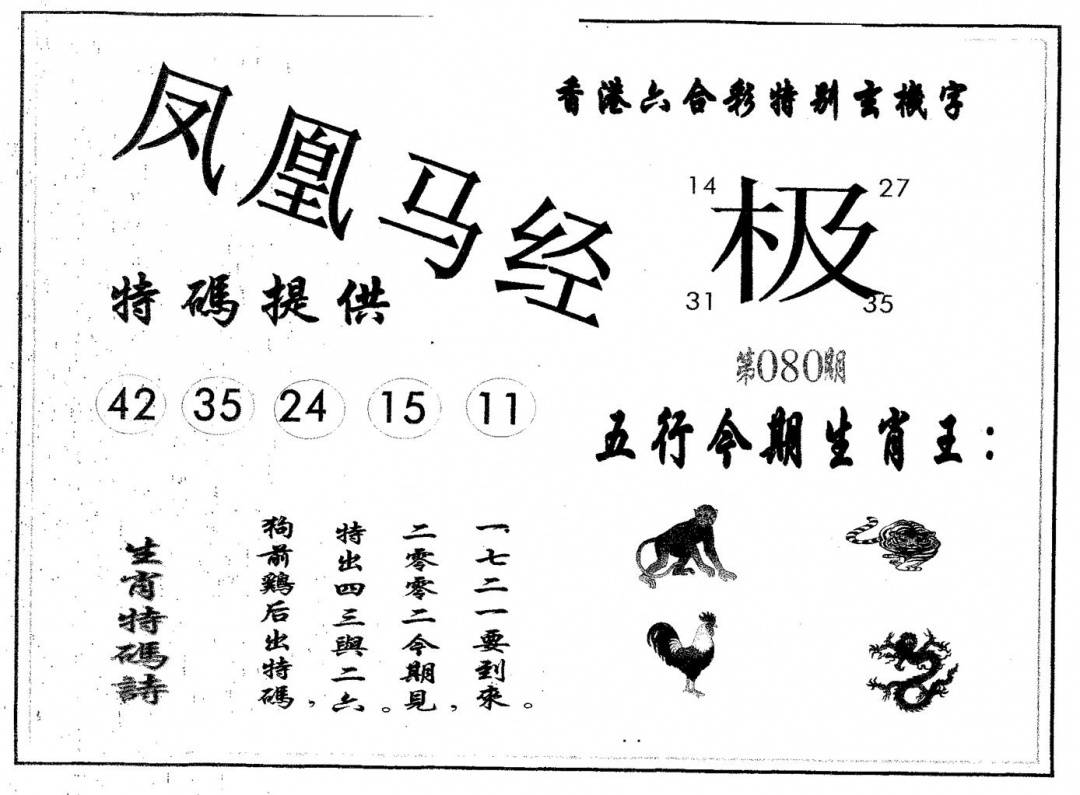 凤凰马经
香港六合彩特别玄機字
14 27
极
31 35
第080期
特碼提供
42 35 24 15 11
五行今期生肖王：
生肖特碼詩
狗前鷄后出特碼，
特出四三與二六。
二零零二今期見，
一七二一要到來。